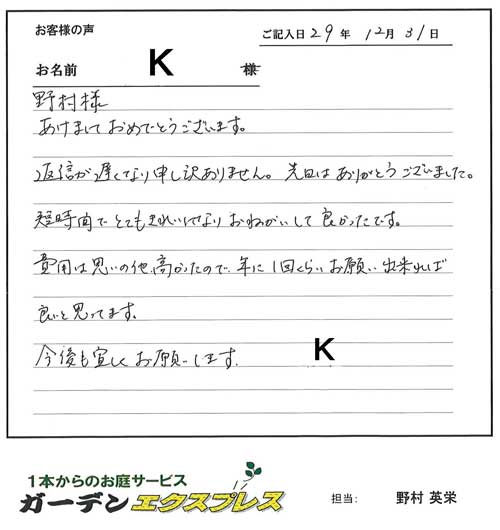 お客様の声
ご記入日 29年 12月 31日
お名前 K 様
野村様
あけましておめでとうございます。
返信が遅くなり申し訳ありません。先日はありがとうございました。
短時間でとてもきれいになりおねがいして良かったです。
費用は思いの他、高かったので、年に1回くらいお願い出来れば
良いと思ってます。
今後も宜しくお願いします。 K
1本からのお庭サービス
ガーデンエクスプレス
担当: 野村 英栄